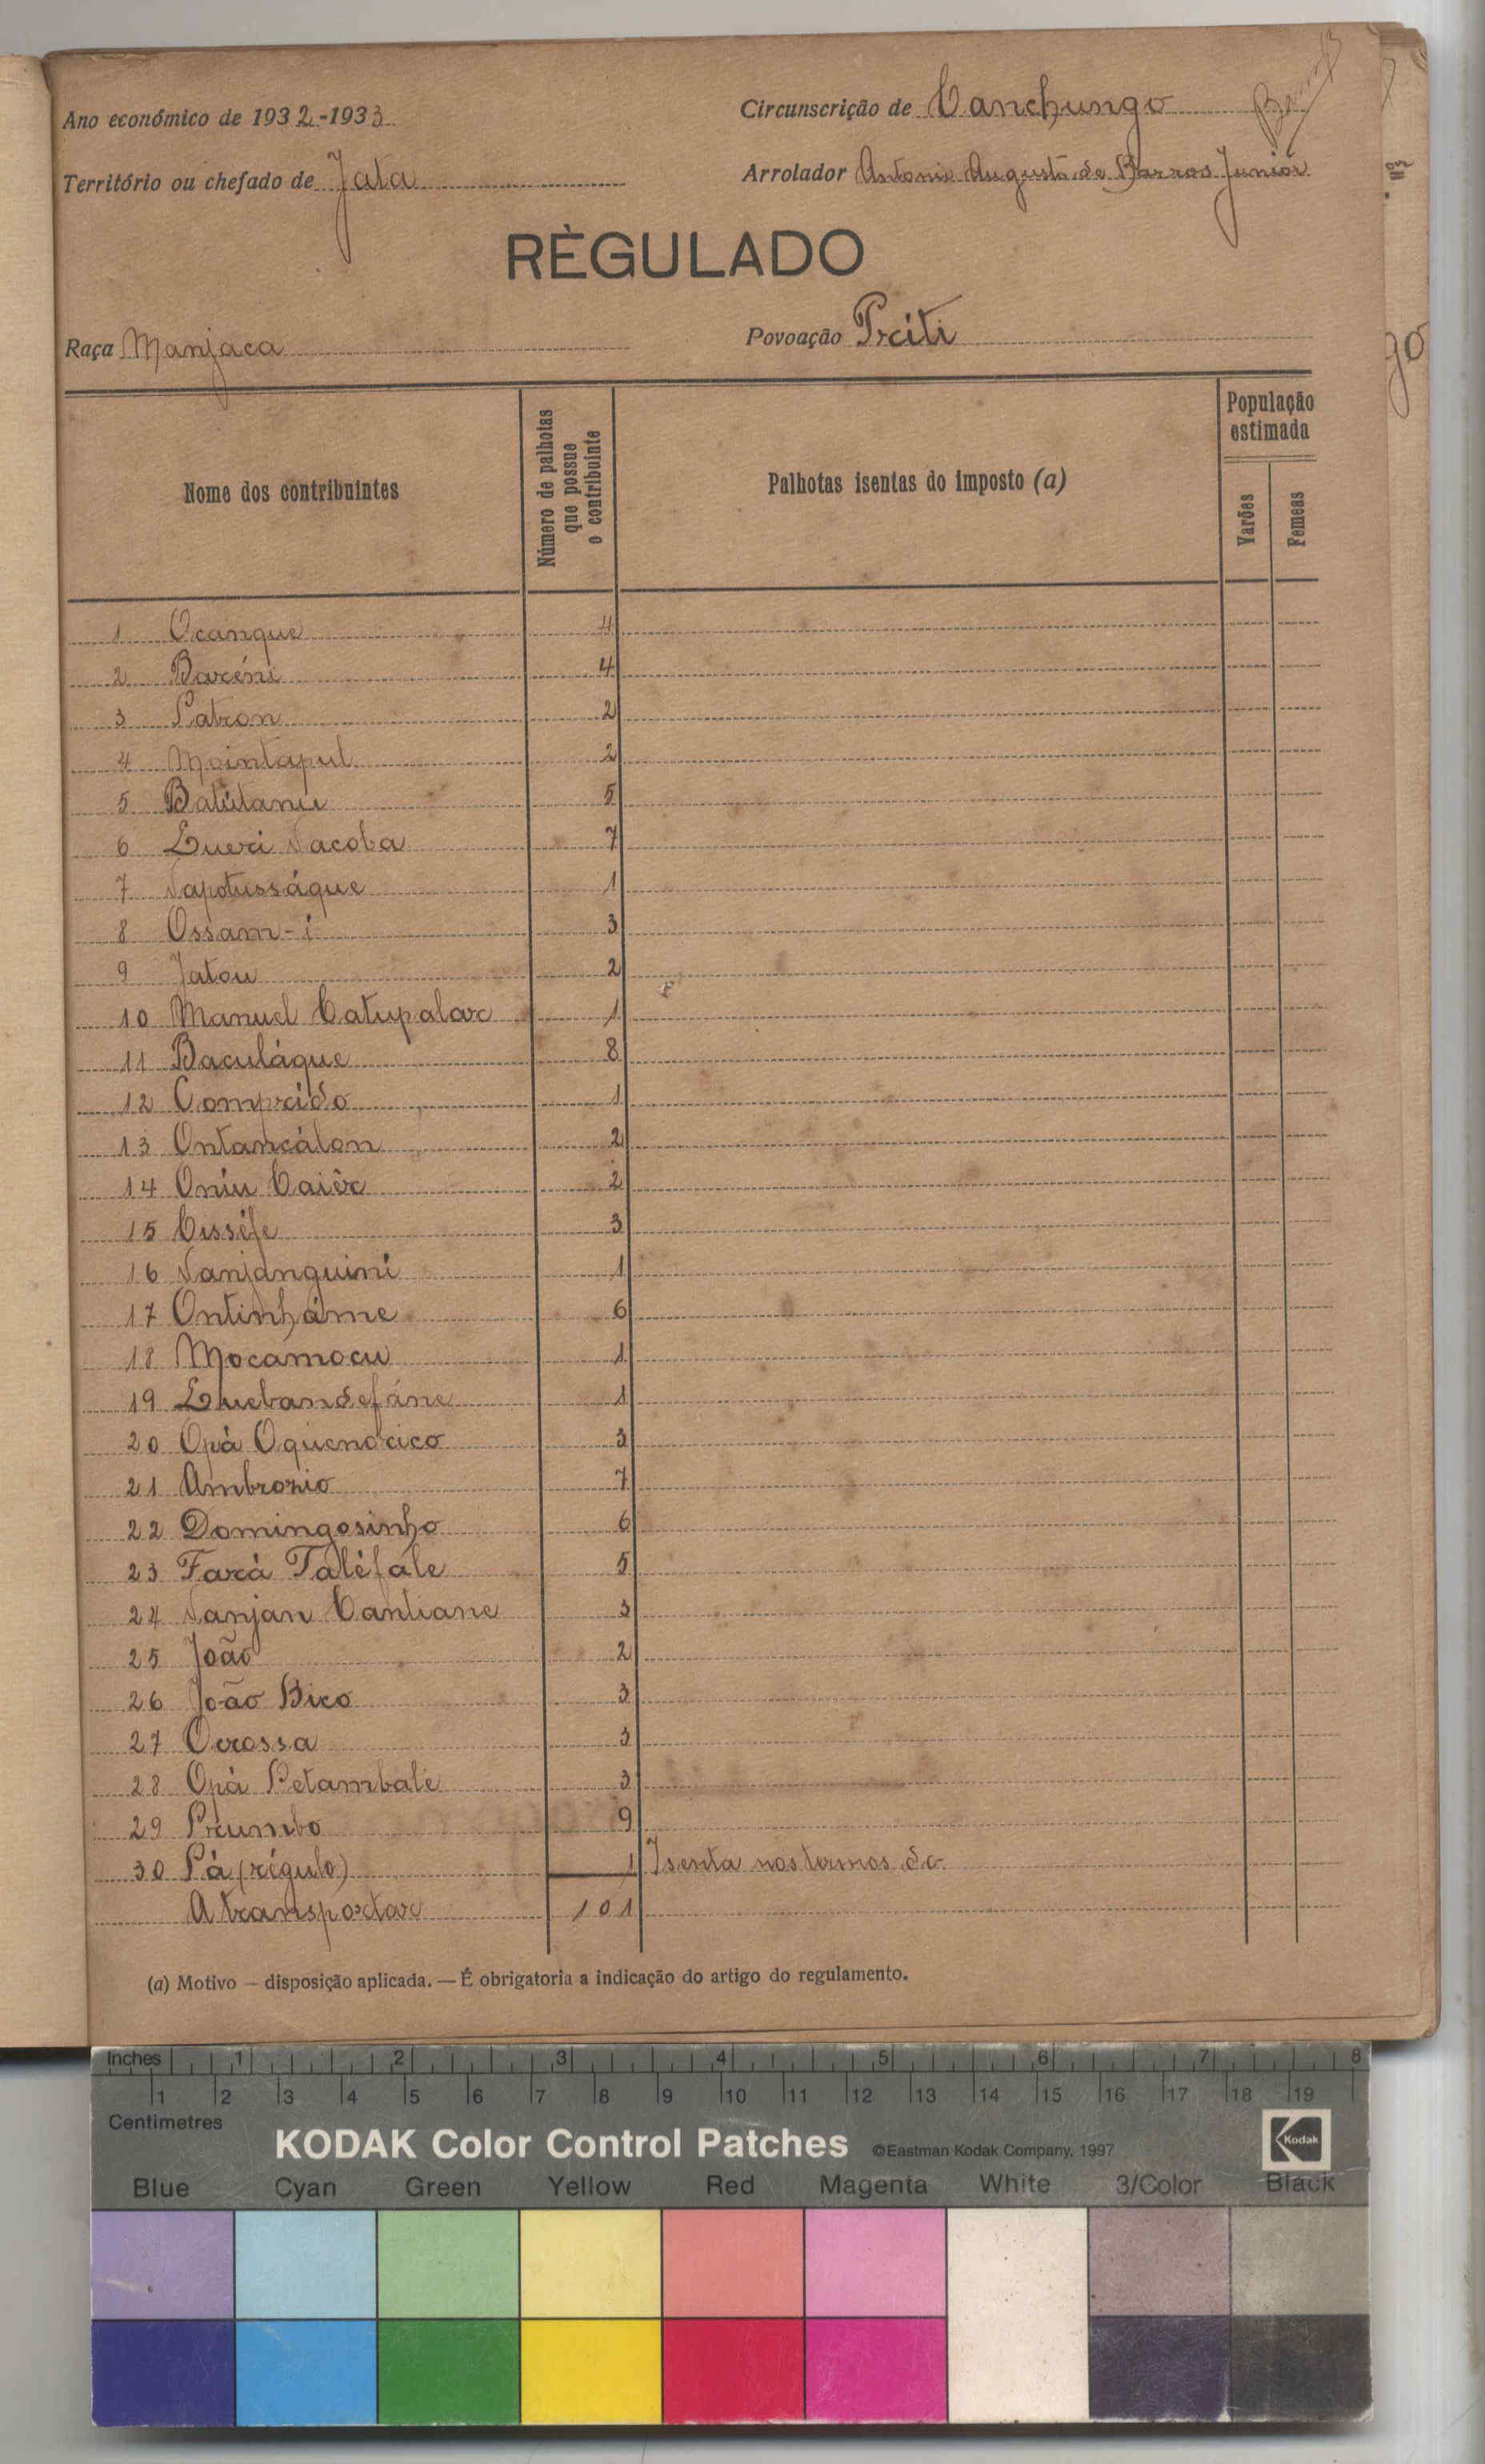 Ano económico de 1932-1933
Circunscrição de Canchungo
Território ou chefado de Jata
Arrolador Antonio Augusto de Barros Junior
RÈGULADO
Raça Manjaca
Povoação Prciti
Nome dos contribuintes
Número de palhotas que possue o contribuinte
Palhotas isentas do imposto (a)
População estimada
Varões
Femeas
1 Ocanque 4
2 Baréni 4
3 Patron 2
4 Mointapul 2
5 Batútanu 5
6 Lueri Nacoba 7
7 Napotusságue 1
8 Ossam-i 3
9 Jatou 2
10 Manuel Catupalar 1
11 Baculáque 8
12 Comprido 1
13 Ontancálon 2
14 Oniu Caiêr 2
15 Cissife 3
16 Nanjanguini 1
17 Ontinháme 6
18 Mocamocu 1
19 Quebandefáne 1
20 Opà Oquenorico 3
21 Ambrozio 7
22 Domingosinho 6
23 Fará Taléfale 5
24 Nanjan Cantiane 3
25 João 2
26 João Bico 3
27 Ocrossa 3
28 Opà Petambale 3
29 Prumbo 9
30 Pà (régulo) 1 Isenta nos termos do
A transportar 101
(a) Motivo — disposição aplicada. — É obrigatoria a indicação do artigo do regulamento.
go
Inches 1 2 3 4 5 6 7 8
1 2 3 4 5 6 7 8 9 10 11 12 13 14 15 16 17 18 19
Centimetres
KODAK Color Control Patches ©Eastman Kodak Company, 1997 Kodak
Blue Cyan Green Yellow Red Magenta White 3/Color Black